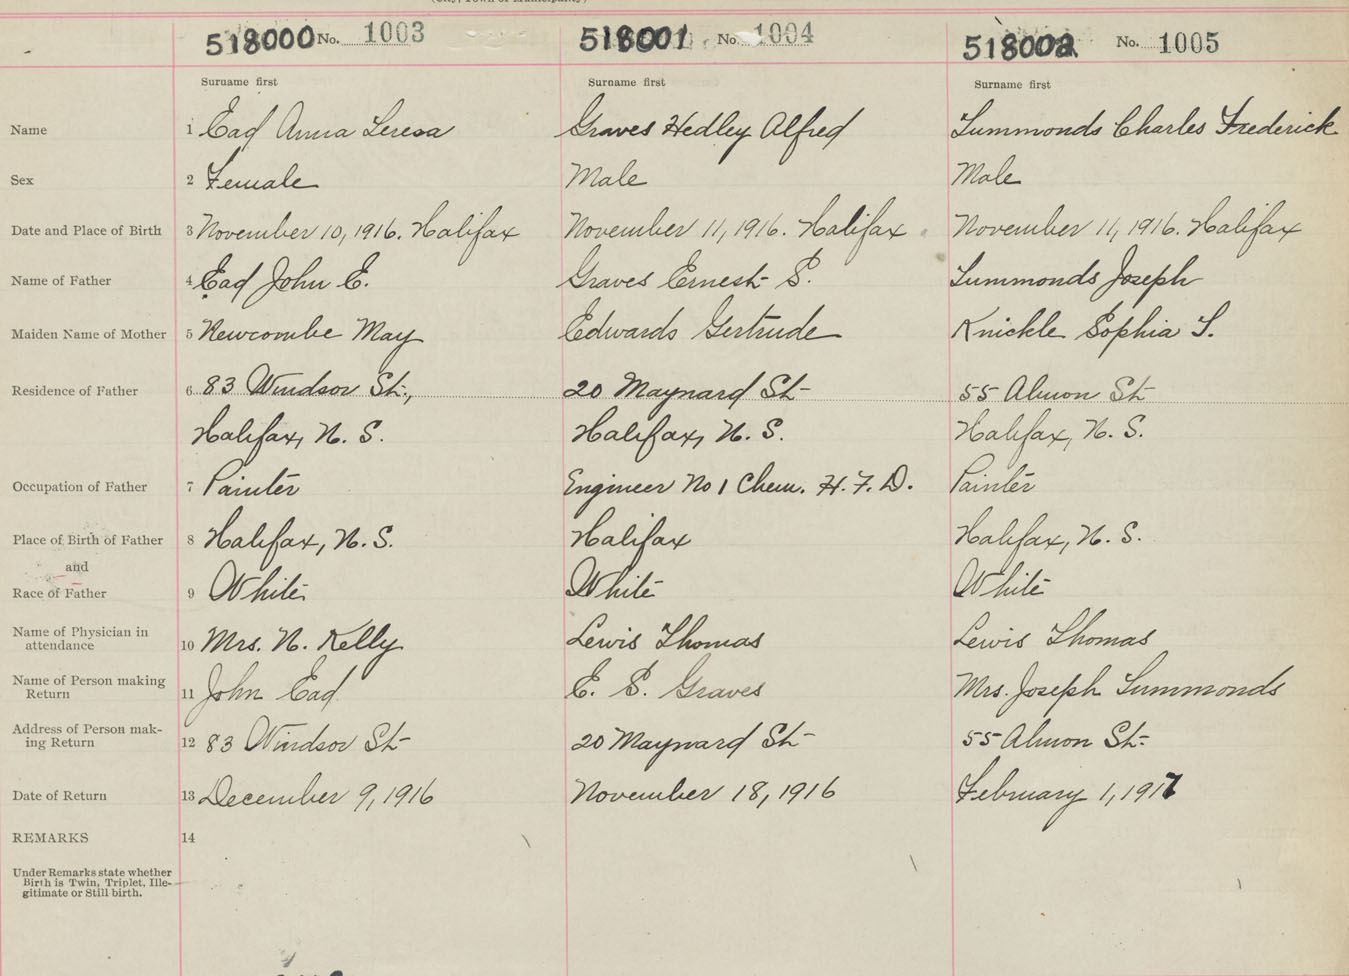 (City, Town or Municipality)
518000 No. 1003 518001 No. 1004 518002 No. 1005
Surname first Surname first Surname first
Name 1 Ead Anna Teresa Graves Hedley Alfred Summonds Charles Frederick
Sex 2 Female Male Male
Date and Place of Birth 3 November 10, 1916. Halifax November 11, 1916. Halifax November 11, 1916. Halifax
Name of Father 4 Ead John E. Graves Ernest S. Summonds Joseph
Maiden Name of Mother 5 Newcombe May Edwards Gertrude Knickle Sophia S.
Residence of Father 6 83 Windsor St., 20 Maynard St 55 Almon St
Halifax, N. S. Halifax, N. S. Halifax, N. S.
Occupation of Father 7 Painter Engineer No 1 Chem. H. F. D. Painter
Place of Birth of Father 8 Halifax, N. S. Halifax Halifax, N. S.
and
Race of Father 9 White White White
Name of Physician in
attendance 10 Mrs. N. Kelly Lewis Thomas Lewis Thomas
Name of Person making
Return 11 John Ead E. S. Graves Mrs. Joseph Summonds
Address of Person mak-
ing Return 12 83 Windsor St 20 Maynard St 55 Almon St.
Date of Return 13 December 9, 1916 November 18, 1916 February 1, 1917
REMARKS 14
Under Remarks state whether
Birth is Twin, Triplet, Ille-
gitimate or Still birth.